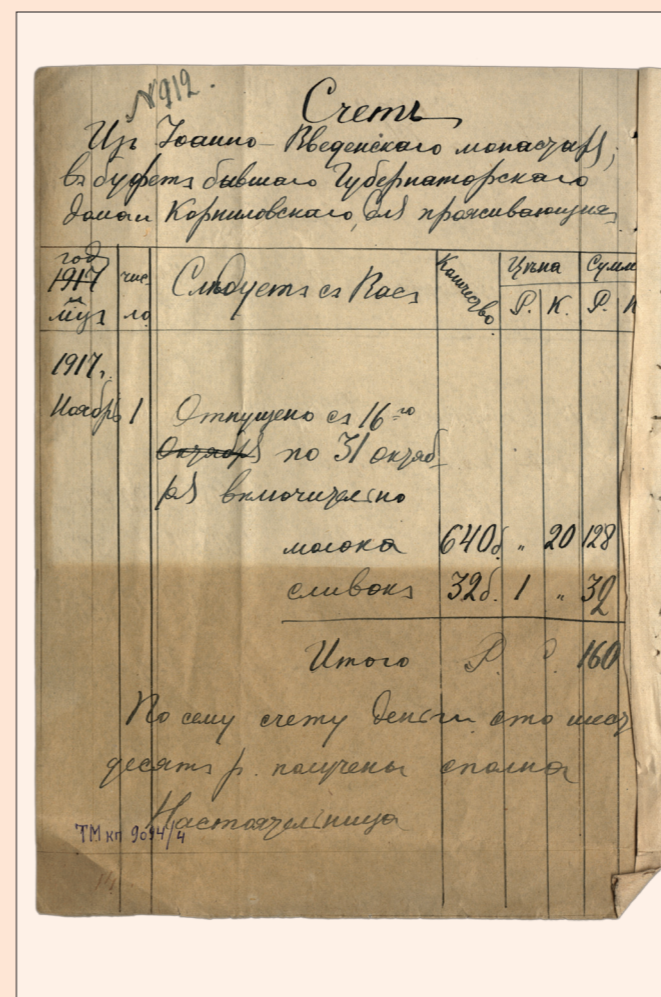 №912.
Счетъ
Изъ Іоанно-Введенскаго монастыря,
въ буфетъ бывшаго Губернаторскаго
дома Корниловскаго, для проживающихъ
год
1917
м-цъ
чис
ло
Слѣдуетъ съ Васъ
Количество
Цѣна
Р. К.
Сумм
Р. К
1917г.
Ноябрь 1 Отпущено съ 16-го
Октября по 31 октяб
ря включительно
молока 640б. „ 20 128
сливокъ 32б. 1 „ 32
Итого Р. 160
По сему счету деньги сто шест
десятъ р. получены сполна
Настоятельница
ТМ кп 9694/4